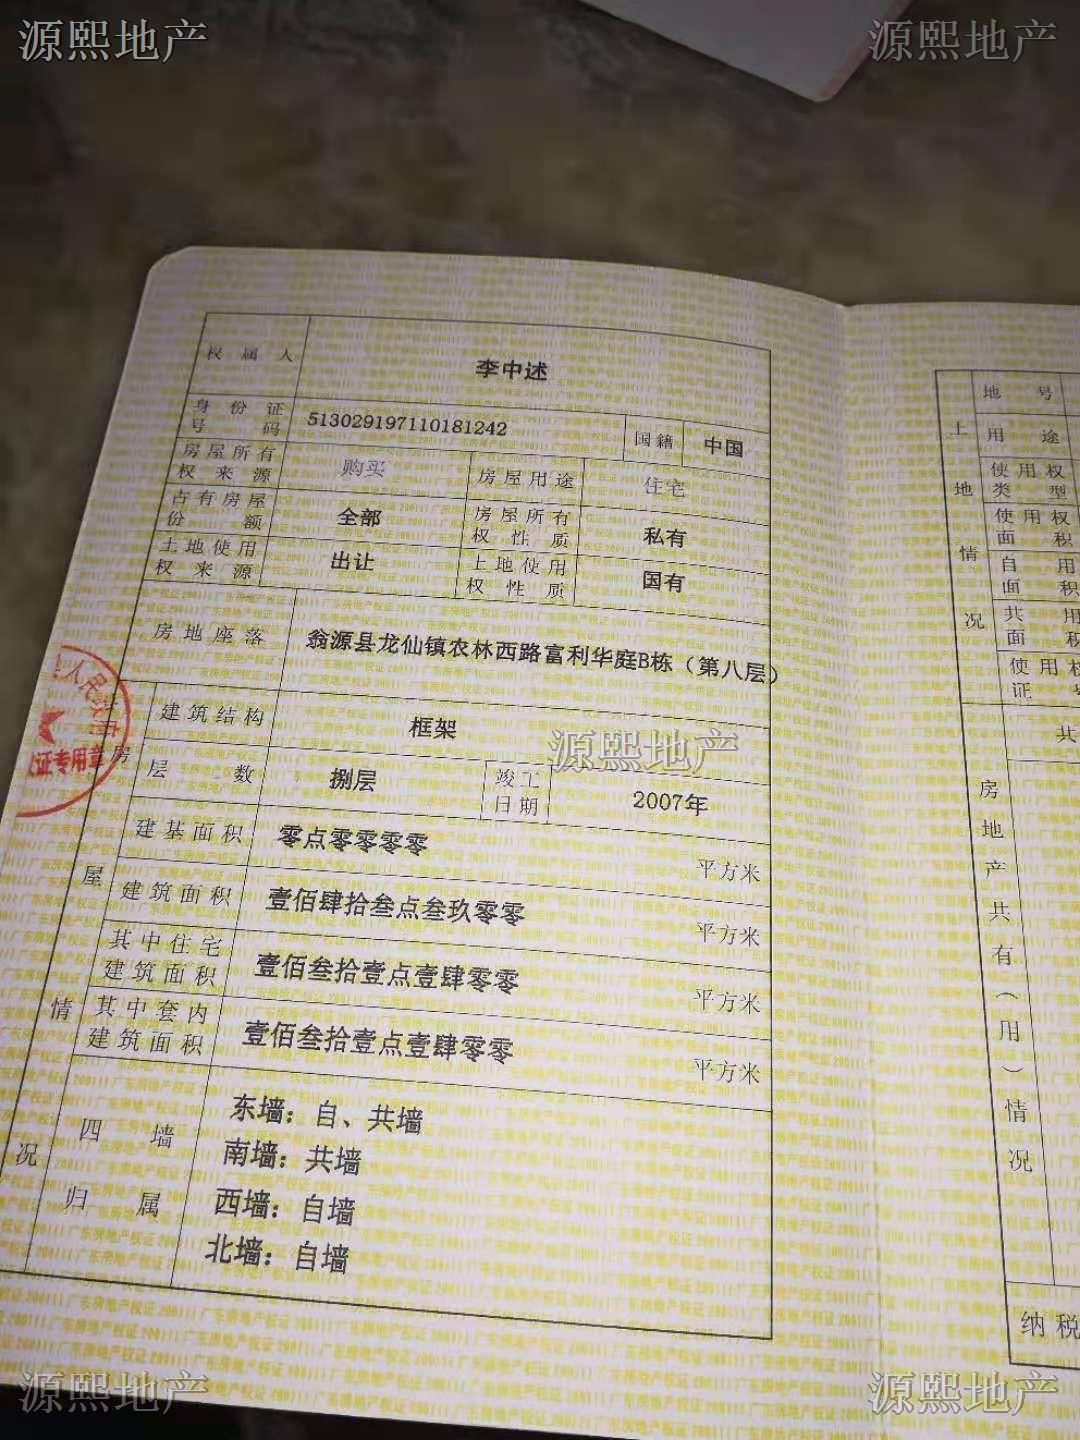 源熙地产
源熙地产
权属人 李中述
身份证号码 513029197110181242 国籍 中国
房屋所有权来源 购买 房屋用途 住宅
占有房屋份额 全部 房屋所有权性质 私有
土地使用权来源 出让 土地使用权性质 国有
房地座落 翁源县龙仙镇农林西路富利华庭B栋（第八层）
人民政府
证专用章
房屋情况
建筑结构 框架
源熙地产
层数 捌层 竣工日期 2007年
建基面积 零点零零零零 平方米
建筑面积 壹佰肆拾叁点叁玖零零 平方米
其中住宅建筑面积 壹佰叁拾壹点壹肆零零 平方米
其中套内建筑面积 壹佰叁拾壹点壹肆零零 平方米
四墙归属
东墙：自、共墙
南墙：共墙
西墙：自墙
北墙：自墙
土地情况
地号
用途
使用权类型
使用权面积
自用面积
共用面积
使用权证号
共
房地产共有（用）情况
纳税
源熙地产
源熙地产